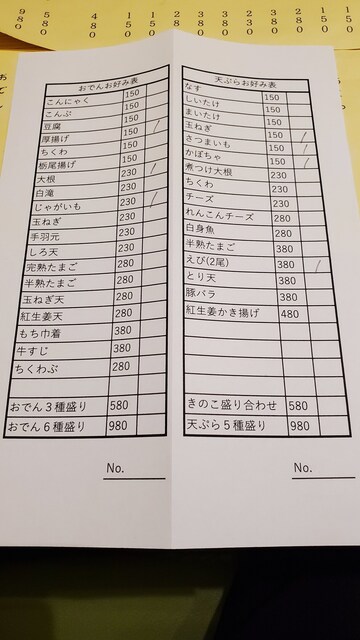 980
580
480
150
150
280
380
380
230
280
150
150
おでんお好み表
こんにゃく 150
こんぶ 150
豆腐 150
厚揚げ 150
ちくわ 150
栃尾揚げ 150
大根 230
白滝 230
じゃがいも 230
玉ねぎ 230
手羽元 230
しろ天 230
完熟たまご 280
半熟たまご 280
玉ねぎ天 280
紅生姜天 280
もち巾着 380
牛すじ 380
ちくわぶ 280
おでん3種盛り 580
おでん6種盛り 980
No.
天ぷらお好み表
なす 150
しいたけ 150
まいたけ 150
玉ねぎ 150
さつまいも 150
かぼちゃ 150
煮つけ大根 230
ちくわ 230
チーズ 230
れんこんチーズ 280
白身魚 280
半熟たまご 380
えび(2尾) 380
とり天 380
豚バラ 380
紅生姜かき揚げ 480
きのこ盛り合わせ 580
天ぷら5種盛り 980
No.